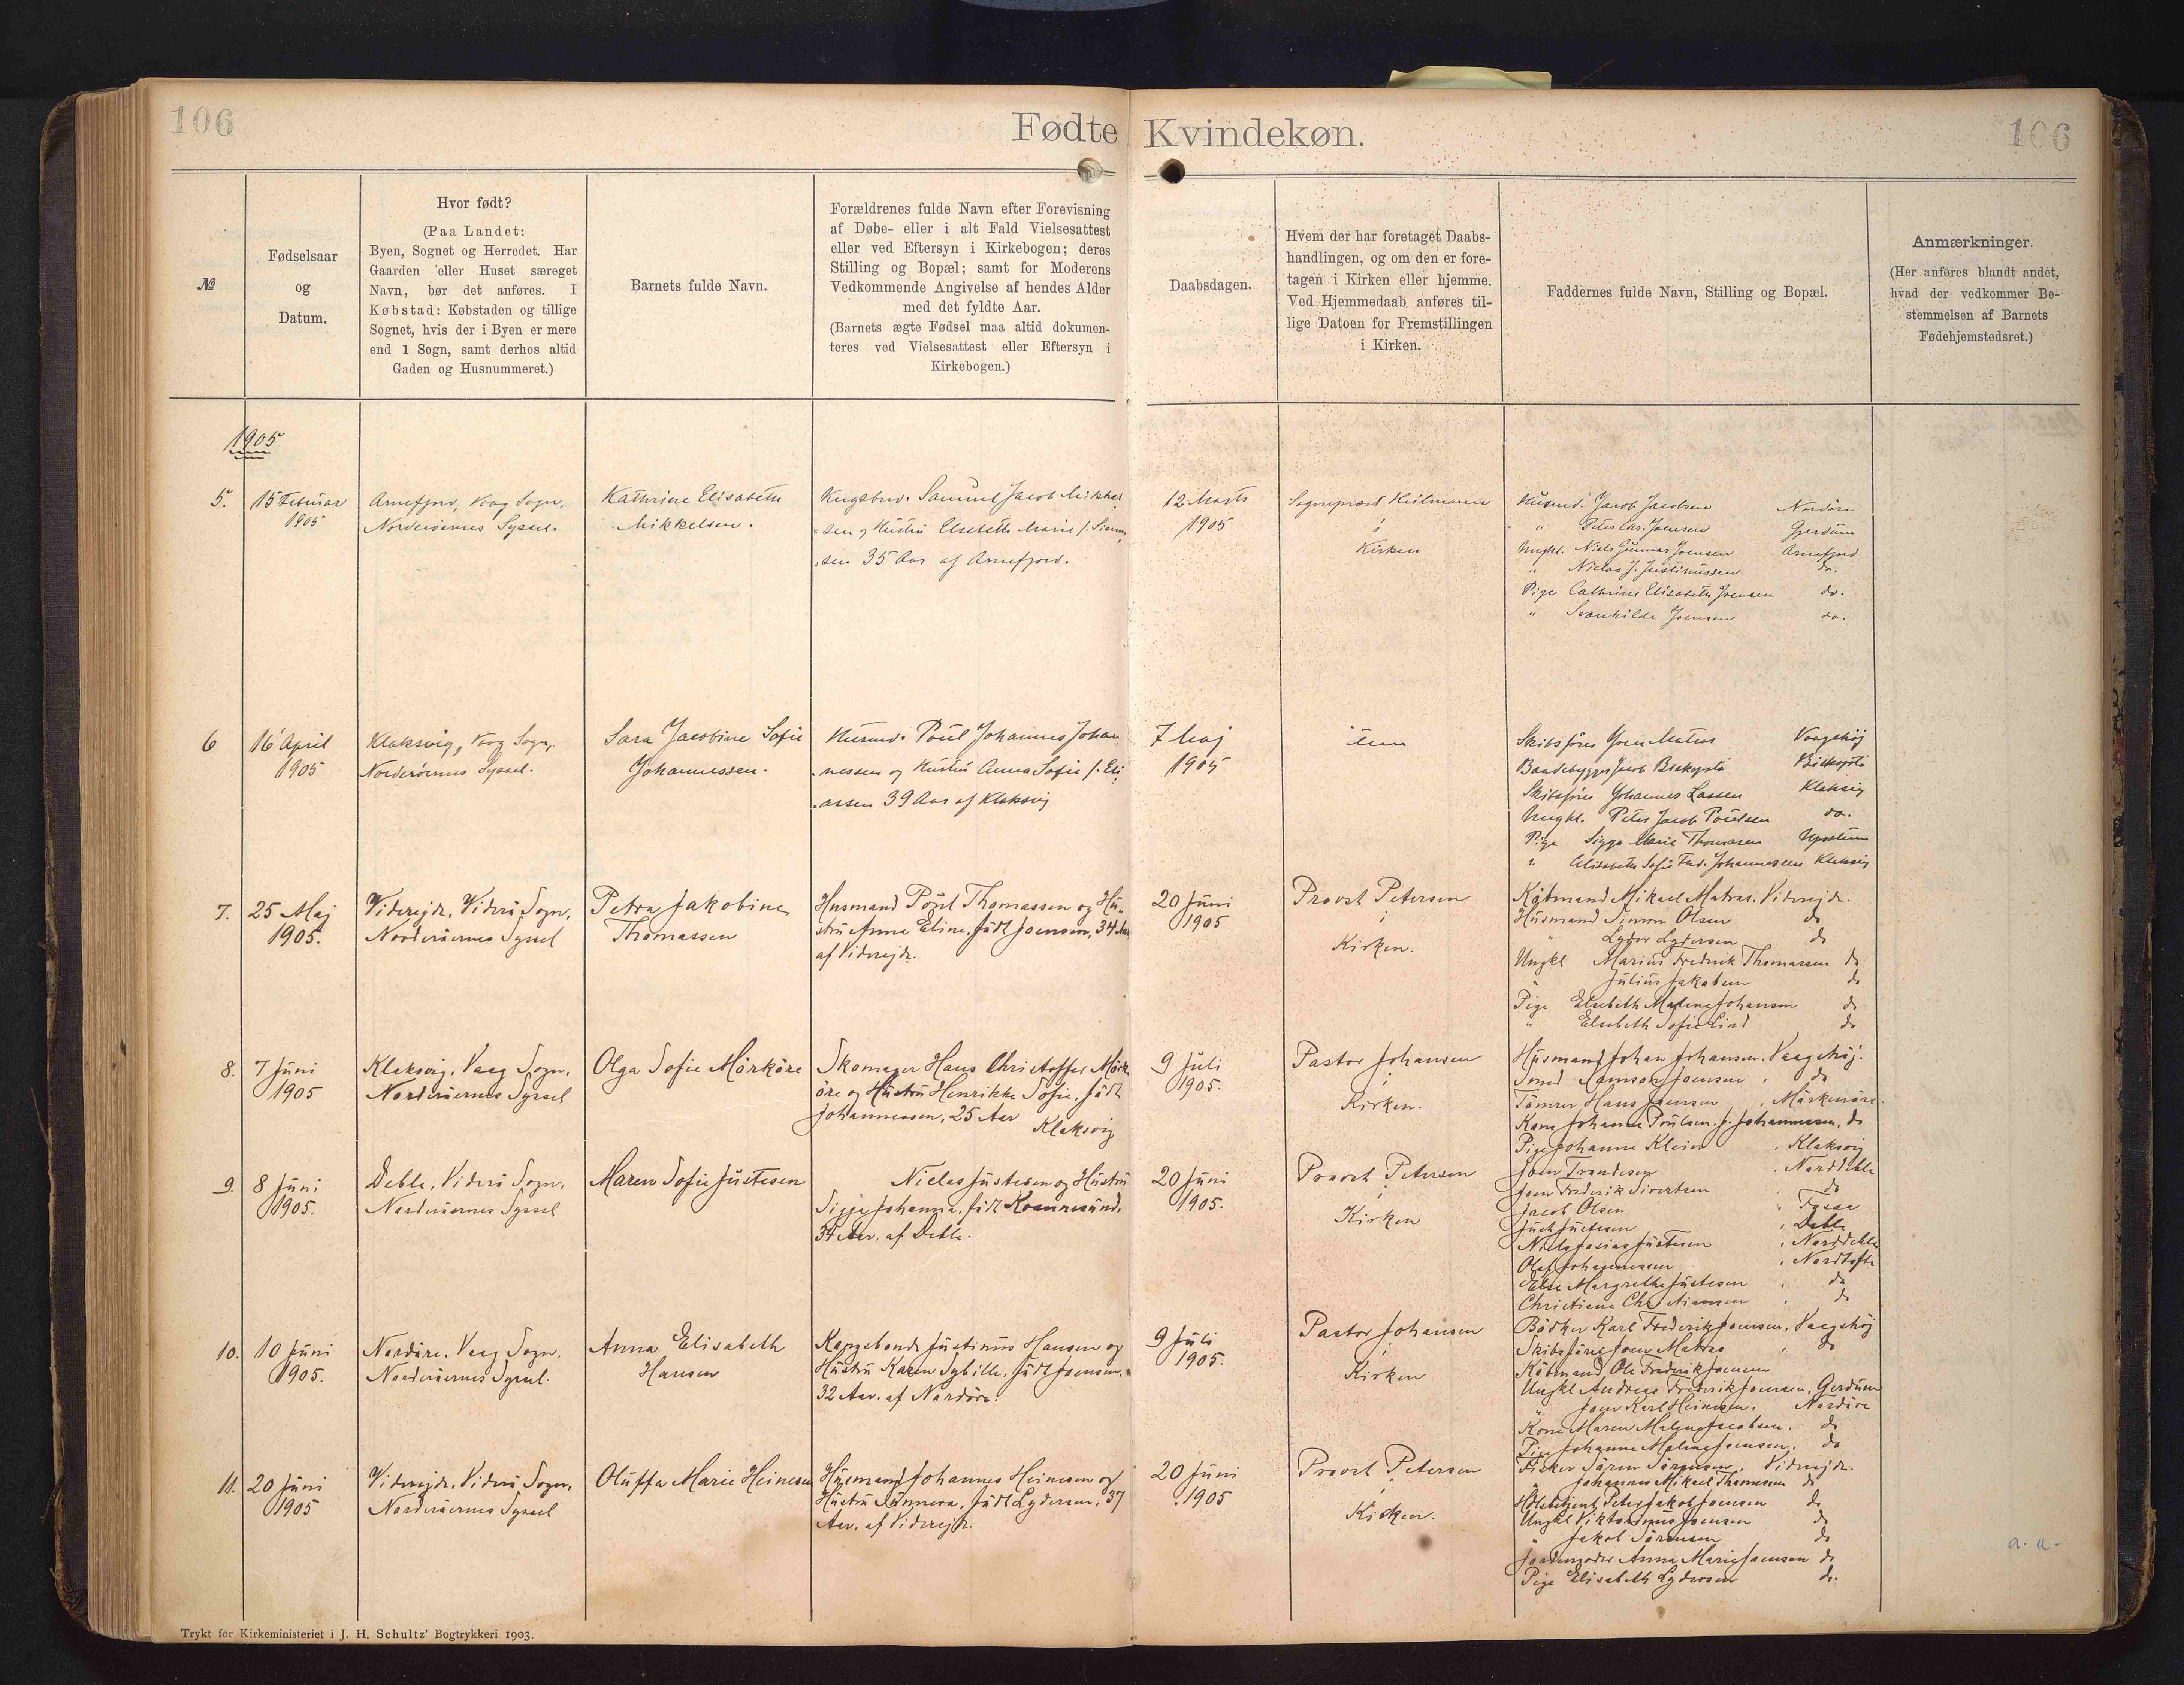 106
Fødte Kvindekøn.
106
№
Fødselsaar
og
Datum.
Hvor født?
(Paa Landet:
Byen, Sognet og Herredet. Har
Gaarden eller Huset særeget
Navn, bør det anføres. I
Købstad: Købstaden og tillige
Sognet, hvis der i Byen er mere
end 1 Sogn, samt derhos altid
Gaden og Husnummeret.)
Barnets fulde Navn.
Forældrenes fulde Navn efter Forevisning
af Døbe- eller i alt Fald Vielsesattest
eller ved Eftersyn i Kirkebogen; deres
Stilling og Bopæl; samt for Moderens
Vedkommende Angivelse af hendes Alder
med det fyldte Aar.
(Barnets ægte Fødsel maa altid dokumen-
teres ved Vielsesattest eller Eftersyn i
Kirkebogen.)
Daabsdagen.
Hvem der har foretaget Daabs-
handlingen, og om den er fore-
tagen i Kirken eller hjemme.
Ved Hjemmedaab anføres til-
lige Datoen for Fremstillingen
i Kirken.
Faddernes fulde Navn, Stilling og Bopæl.
Anmærkninger.
(Her anføres blandt andet,
hvad der vedkommer Be-
stemmelsen af Barnets
Fødehjemstedsret.)
1905
5.
15 Februar
1905
Arnefjord, Vaag Sogn,
Norderøernes Syssel.
Kathrine Elisabeth
Mikkelsen.
Kngsbnd. Samuel Jacob Mikkel
sen og Hustru Elsebeth Marie f. Simon
sen 35 Aar af Arnefjord.
12 Marts
1905
Sognepræst Heilmann
i
Kirken
Husmd. Jacob Jacobsen Nordøre
" Peter Chr. Joensen Gjerdum
Ungkl. Niels Gunnar Joensen Arnefjord
" Niclas J. Justinussen do.
Pige Cathrine Elisabeth Joensen do.
" Svanhilde Joensen do.
6
16 April
1905
Klaksvig, Vaag Sogn,
Norderøernes Syssel.
Sara Jacobine Sofie
Johannessen.
Husmd. Poul Johannes Johan
nessen og Hustru Anna Sofie f. Eli
assen 39 Aar af Klaksvig
7 Maj
1905
idem
Skibsfører Joen Matras Vaagshøj
Baadebygger Jacob Biskopstø Biskopstø
Skibsfører Johannes Lassen Klaksvig
Ungkl. Peter Jacob Poulsen do.
Pige Sigga Marie Thomasen
" Elisabeth Sofie Fred. Johannessen Klaksvig
7.
25 Maj
1905.
Viderejde, Viderø Sogn,
Norderøernes Syssel
Petra Jakobine
Thomassen
Husmand Poul Thomassen og Hu-
stru Anna Eline, født Joensen, 34 Aar
af Viderejde.
20 Juni
1905
Provst Petersen
i
Kirken.
Købmand Mikael Matras. Viderejde.
Husmand Simon Olsen do
" Lyder Lydersen do
Ungkl Marius Frederik Thomassen do
" Julius Jakobsen do
Pige Elsebeth Malene Johansen do
" Elsebeth Sofie Lind do
8.
7 Juni
1905
Klaksvig, Vaag Sogn,
Norderøernes Syssel
Olga Sofie Mørkøre
Skomager Hans Christoffer Mørk
øre og Hustru Henrikke Sofie, født
Johannessen, 25 Aar
Klaksvig
9 Juli
1905.
Pastor Johansen
i
Kirken.
Husmand Johan Johansen. Vaagshøj.
Smed Samson Joensen, do
Tømrer Hans Joensen, Mørkenøre.
Kone Johanne Poulsen, f. Johannessen, do
Pige Johanne Klein, Klaksvig
9.
8 Juni
1905.
Deble, Viderø Sogn,
Norderøernes Syssel
Maren Sofie Justesen
Niclas Justesen og Hustru
Sigga Johanna, født Kaannesund,
34 Aar, af Deble.
20 Juni
1905.
Provst Petersen
i
Kirken
Joen Trondesen, Norddeble
Joen Frederik Sivertsen do
Jacob Olsen,
Just Justesen, Deble
Niels Josias Justesen, Norddeble
Olaf Johannessen, Nordtofte
Else Margrethe Justesen, do
Christiane Christiansen, do
10.
10 Juni
1905.
Nordøre, Vaag Sogn,
Norderøernes Syssel.
Anna Elisabeth
Hansen
Kongsbonde Justinus Hansen og
Hustru Karen Sybille, født Joensen,
32 Aar, af Nordøre.
9 Juli
1905.
Pastor Johansen
i
Kirken
Bødker Karl Frederik Joensen, Vaagshøj
Skibsfører Joen Matras, do
Købmand Ole Frederik Joensen
Ungkl Andreas Frederik Joensen, Gerdum
" Joen Karl Heinesen, Nordøre
Kone Maren Malene Jacobsen, do
Pige Johanne Malene Joensen, do
11.
20 Juni
1905
Viderejde, Viderø Sogn,
Norderøernes Syssel
Oluffa Marie Heinesen
Husmand Johannes Heinesen og
Hustru Sunneva, født Lydersen, 37
Aar, af Viderejde.
20 Juni
1905
Provst Petersen
i
Kirken.
Fisker Søren Sørensen, Viderejde.
" Johannes Mikael Thomassen do
Peter Jakob Joensen do
Ungkl Joensen do
" Jakob Sørensen do
Jordemoder Anna Marie Joensen do
Pige Elisabeth Lydersen do.
a. a.
Trykt for Kirkeministeriet i J. H. Schultz' Bogtrykkeri 1903.